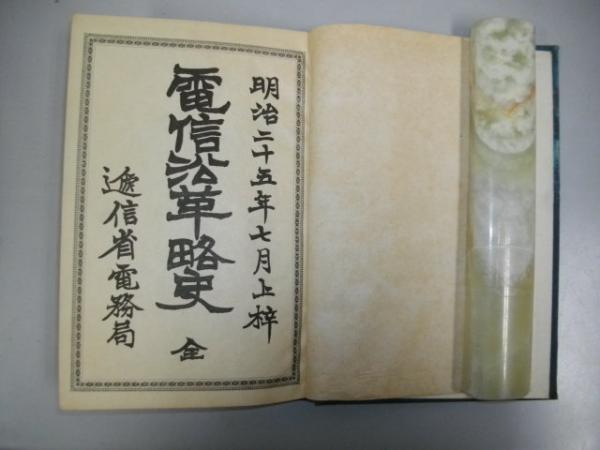 明治二十五年七月上梓
電信沿革略史 全
遞信省電務局